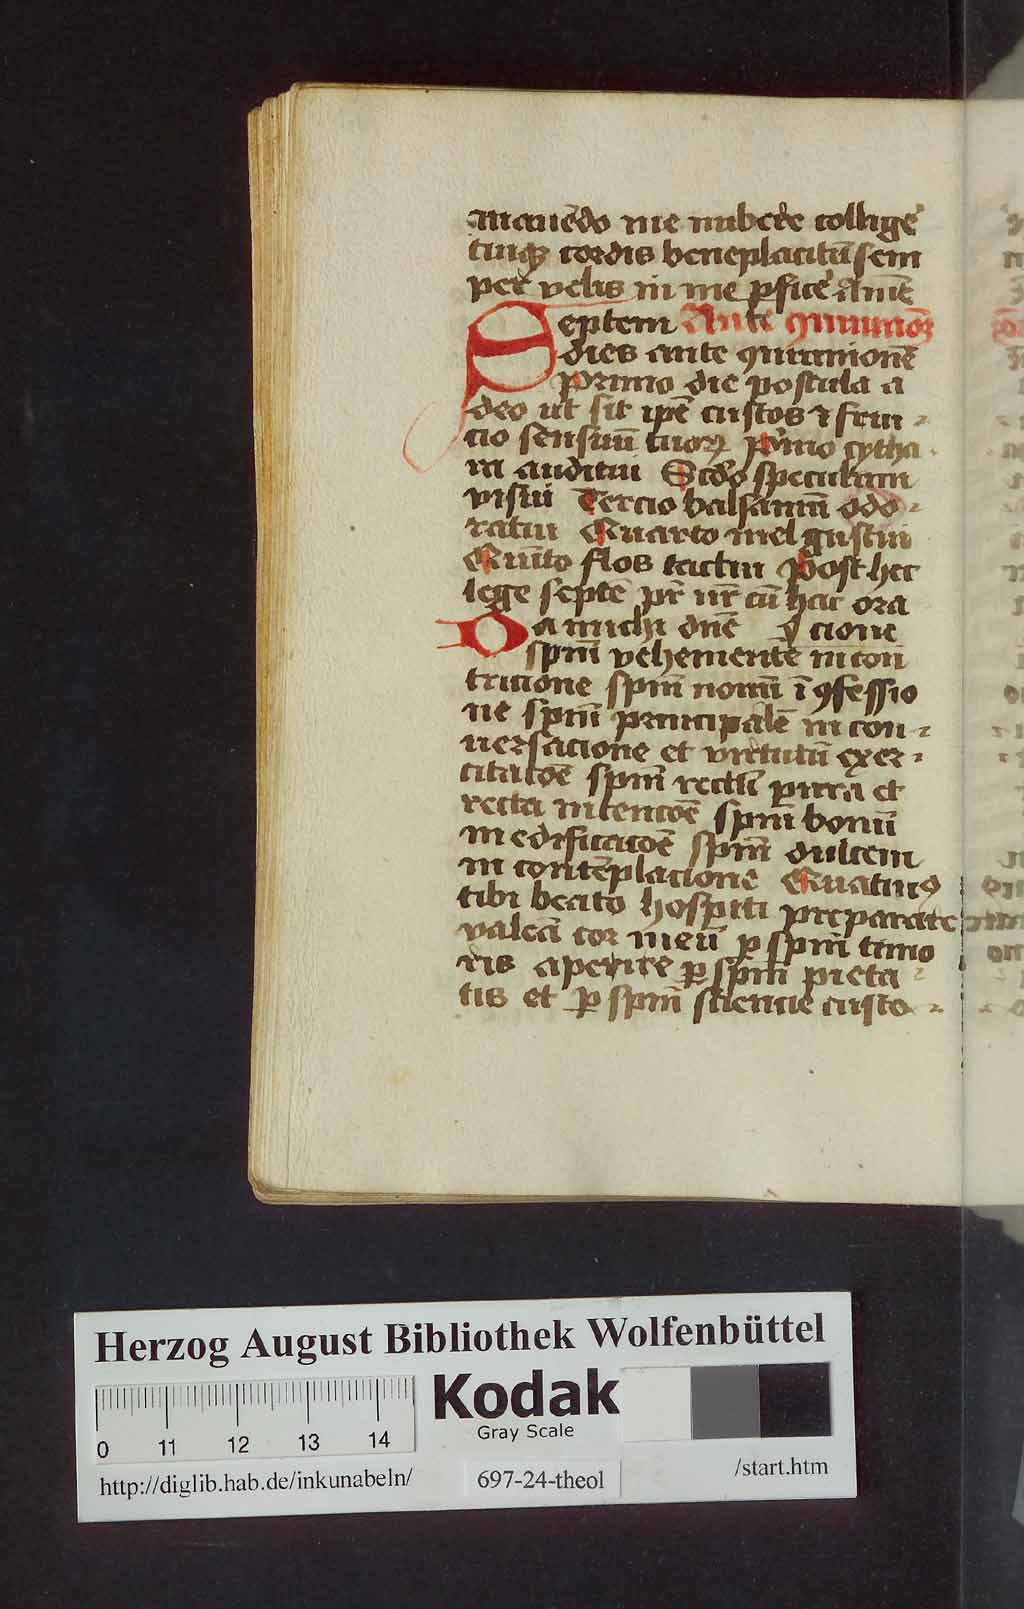 manēdo me iubere collige͛
tuiqꝫ cordis beneplacitū sem
per velis in me ꝑfice͛ amē
Septem Ante ꝯmunioꝫ
dies ante ꝯmunionē
Primo die postula a
deo ut sit ip̄e custos ⁊ frui-
cio sensuū tuoꝝ Pͥmo cytha-
ra auditui Scd̄o speculum
visui Tercio balsamū odo-
ratui Quarto mel gustui
Quīto flos tactui Post hec
lege septē pr̄ nr̄ cū hac ora
Da michi dn̄e cione
spm̄ vehementē in con
tricione spm̄ nouū ī ꝯfessio
ne spm̄ principalē in con-
uersacione et virtutū exer-
citatōe spm̄ rectū pura et
recta intencōe spm̄ bonū
in edificatōe spm̄ dulcem
in contēplacione Quatinꝰ
tibi beato hospiti preparare
valeā cor meū ꝑ spm̄ timo
ris aperire ꝑ spm̄ pieta-
tis et ꝑ spm̄ sciencie custo-
Herzog August Bibliothek Wolfenbüttel
0 11 12 13 14
Kodak
Gray Scale
http://diglib.hab.de/inkunabeln/
697-24-theol
/start.htm